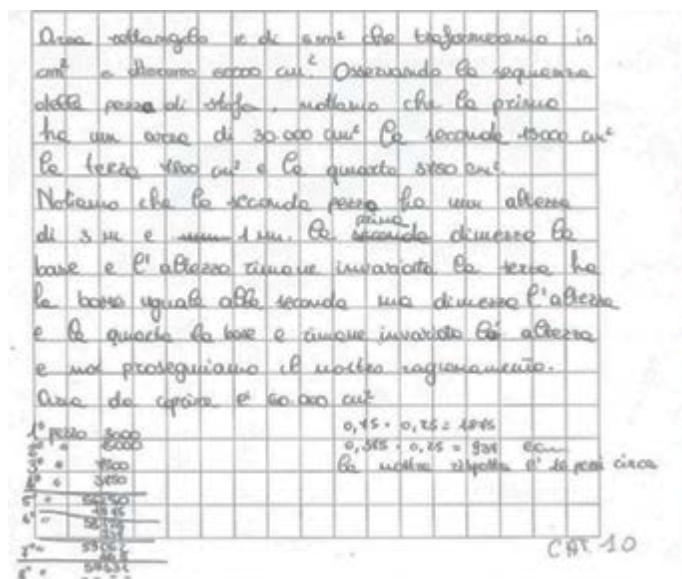 Area rettangolo è di 6 m² che trasformeremo in
cm² e otteniamo 60000 cm². Osservando la sequenza
delle pezza di stoffa, notiamo che la prima
ha un area di 30.000 cm² la seconda 15000 cm²
la terza 7500 cm² e la quarta 3750 cm².
Notiamo che la seconda pezza ha un altezza
prima
di 3 m e 1 m. la seconda dimezza la
base e l'altezza rimane invariata la terza ha
la base uguale alla seconda ma dimezza l'altezza
e la quarta la base e rimane invariata l'altezza
e noi proseguiamo il nostro ragionamento.
Area da coprire è 60.000 cm²
1° pezzo 3000
15000
7500
3750
56250
0,75 · 0,25 = 1875
0,375 · 0,25 = 937
la nostra risposta è 16 pezzi circa
CAT 10